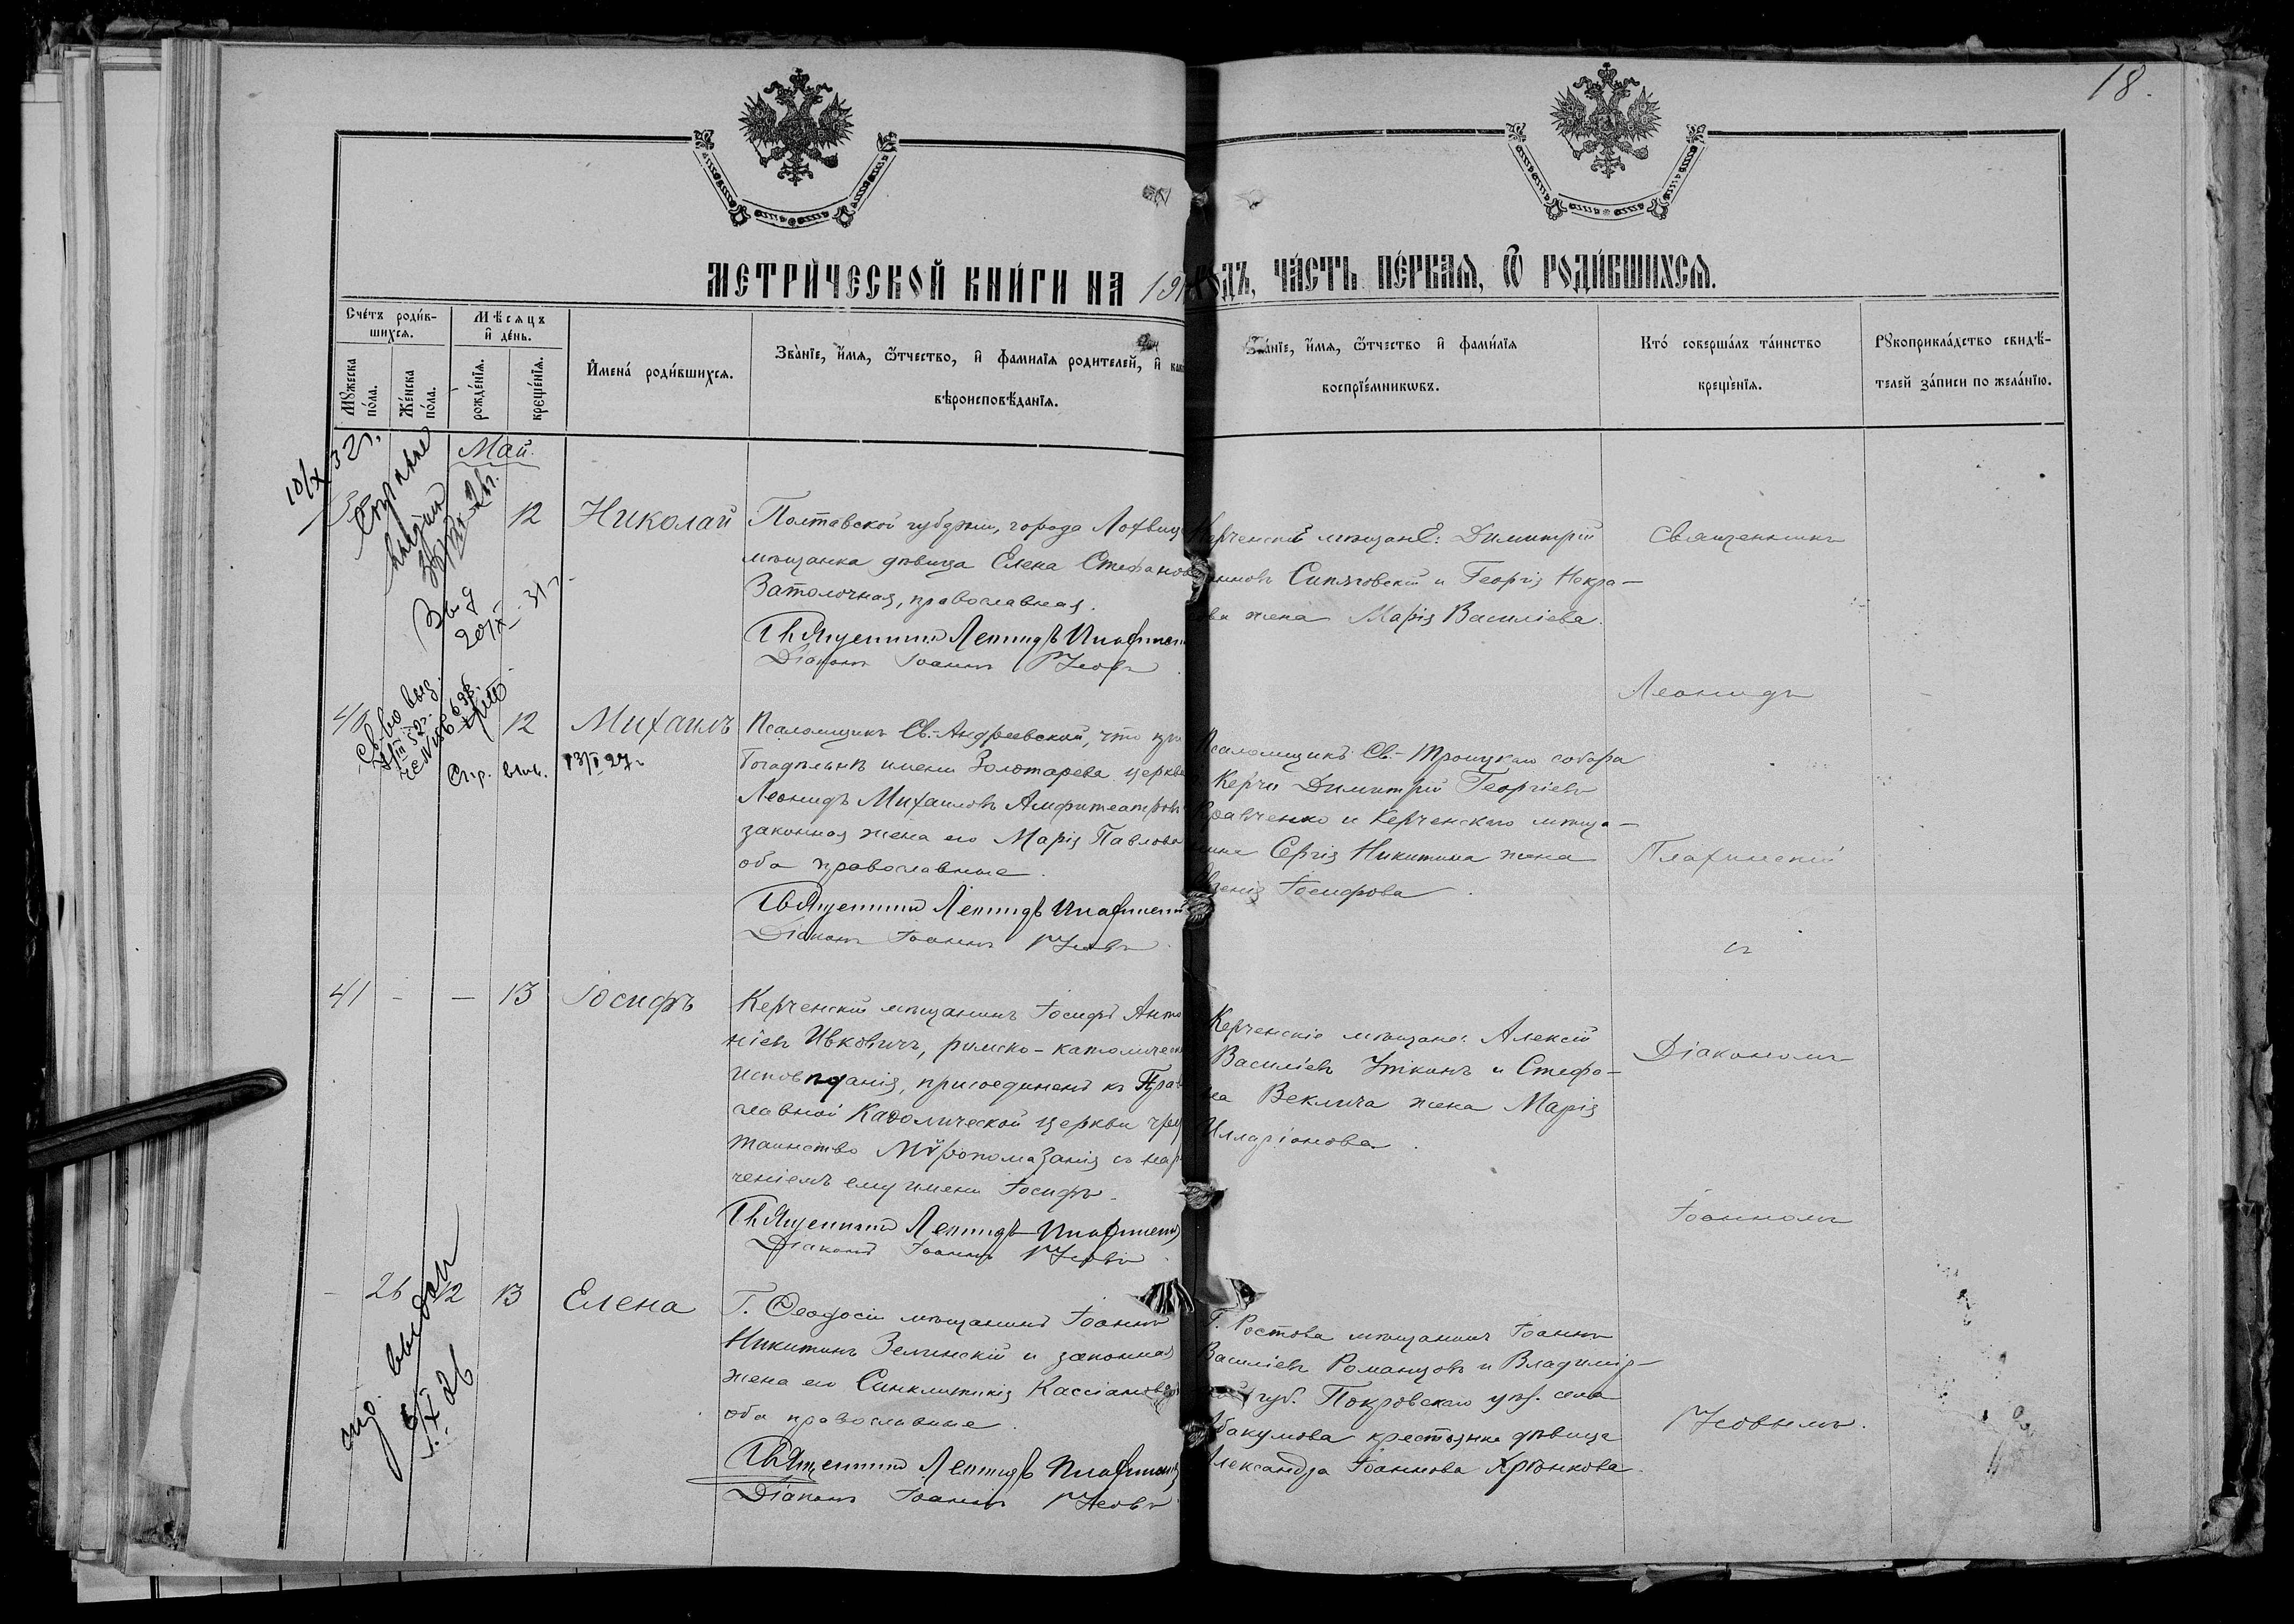 18.
МЕТРИ́ЧЕСКОЙ КНИ́ГИ НА 191 ГОДЪ, ЧА́СТЬ ПЕ́РВАЯ, Ѡ РОДИ́ВШИХСЯ.
Сче́тъ роди́в-
шихся.
Мꙋжеска
по́ла.
Же́нска
по́ла.
Мѣ́сяцъ
и҆ де́нь.
рожде́нїя.
креще́нїя.
И҆мена́ роди́вшихся.
Зва́нїе, и҆́мя, ѻ҆́тчество, и҆ фами́лїя родителей, и҆
вѣроисповѣ́данїя.
Зва́нїе, и҆́мя, ѻ҆́тчество и҆ фами́лїя
воспрїе́мникѡвъ.
Кто́ соверша́лъ та́инство
креще́нїя.
Рꙋкоприкла́дство свидѣ́-
телей за́писи по жела́нїю.
Май.
12 Николай
Полтавской губерніи, города Лохвиц
мѣщанка дѣвица Елена Стефанова
Затолочная, православная.
Священникъ Леонидъ
Діаконъ Іоаннъ Усовъ
Керченскіе мѣщане: Димитрій
Сипяговскій и Георгія Некра-
сова жена Марія Василіева.
40 12 Михаилъ
Псаломщикъ Св.-Андреевской, что при
богадѣльнѣ имени Золотарева церкви
Леонидъ Михаиловъ Амфитеатровъ
законная жена его Марія Павлова
оба православные.
Священникъ Леонидъ
Діаконъ Іоаннъ Усовъ
Псаломщикъ Св.-Троицкаго собора
Керчи Димитрій Георгіевъ
Кравченко и Керченскаго мѣща-
нина Сергія Никитина жена
Іосифова.
41 - - 13 Іосифъ
Керченскій мѣщанинъ Іосифъ Анто
ніевъ Ивковичъ, римско-католическ
исповѣданія, присоединенъ къ Прав
славной Каѳолической церкви чрез
таинство Мѵропомазанія съ нар
ченіемъ ему имени Іосифъ.
Священникъ Леонидъ
Діаконъ Іоаннъ Усовъ
Керченскіе мѣщане: Алексій
Василіевъ Уткинъ и Стефа-
на Веклича жена Марія
Илларіонова.
- 26 12 13 Елена
Г. Ѳеодосіи мѣщанинъ Іоаннъ
Никитинъ Зелинскій и законная
жена его Синклитикія Кассіанова
оба православные.
Священникъ Леонидъ
Діаконъ Іоаннъ Усовъ
Г. Ростова мѣщанинъ Іоаннъ
Василіевъ Романцовъ и Владимір-
губ. Покровскаго уѣз. села
Абакумова крестьянка дѣвица
Александра Іоаннова Хрѣнкова.
Священникъ
Леонидъ
съ
Діакономъ
Іоанномъ
Усовымъ.
выдан